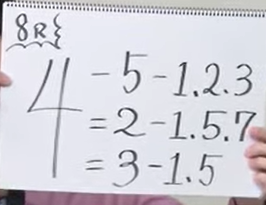 8R{
4 -5-1.2.3
=2-1.5.7
=3-1.5